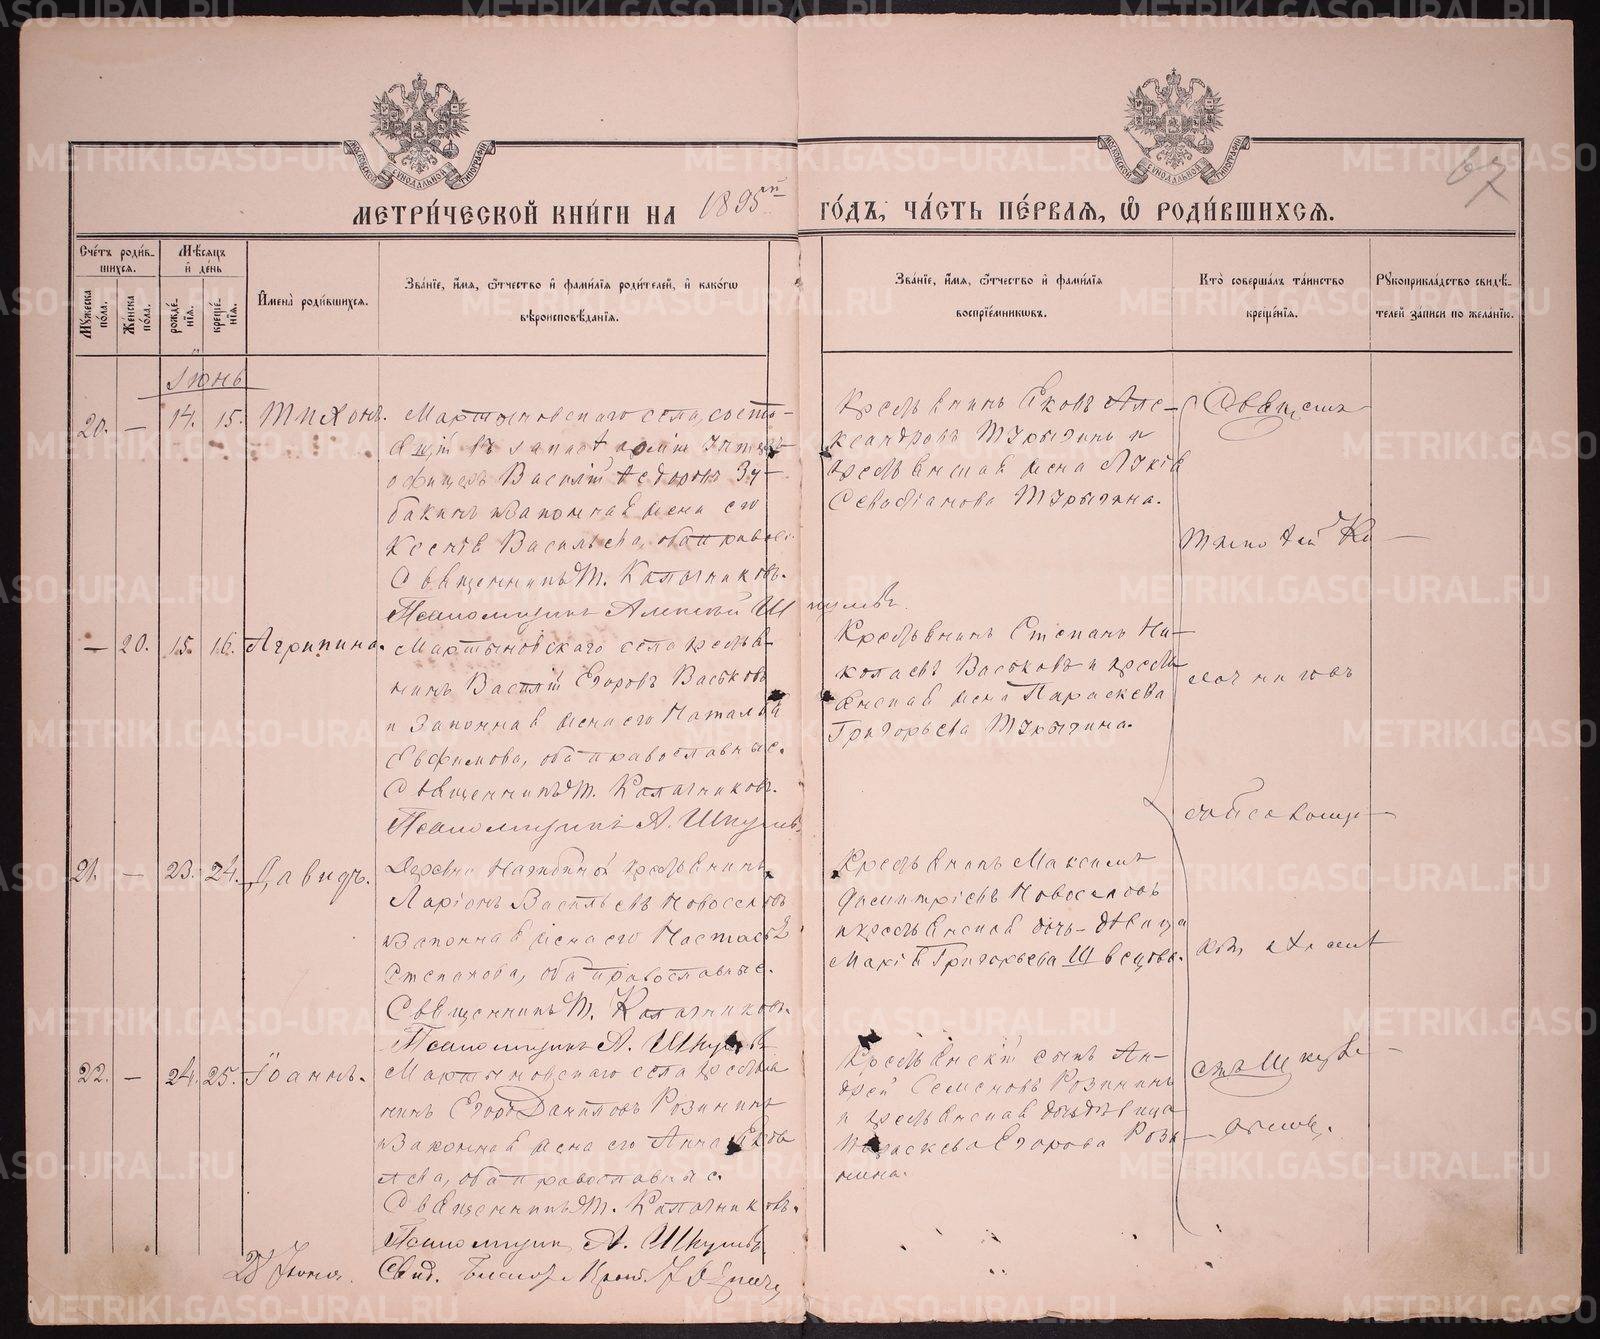 МЕТРИЧЕСКОЙ КНИГИ НА 1895й ГОДЪ, ЧАСТЬ ПЕРВАЯ, Ѿ РОДИВШИХСЯ.
67
Счетъ родившихся.
Мужеска пола.
Женска пола.
Мѣсяцъ и день
рожденія.
крещенія.
Имена родившихся.
Званіе, имя, ѿчество и фамилія родителей, и какогѡ вѣроисповѣданія.
Званіе, имя, ѿчество и фамилія воспріемникѡвъ.
Кто совершалъ таинство крещенія.
Рукоприкладство свидѣтелей записи по желанію.
Іюнь
20. — 14. 15. Тихонъ.
Мартыновскаго села, состо-
ящій въ запасѣ арміи унтеръ-
офицеръ Василій Ѳедоровъ Зу-
бакинъ и законная жена его
Ксенія Васильева, оба правос.
Священникъ Т. Калачниковъ.
Псаломщикъ Алексѣй Шкулевъ.
Крестьянинъ Яковъ Але-
ксандровъ Тўрыгинъ и
крестьянская жена Лукія
Севастіанова Турыгина.
— 20. 15. 16. Агрипина.
Мартыновскаго села крестья-
нинъ Василій Егоровъ Васьковъ
и законная жена его Наталья
Евфимова, оба православные.
Священникъ Т. Калачниковъ.
Псаломщикъ А. Шкулевъ.
Крестьянинъ Степанъ Ни-
колаевъ Васьковъ и кресть-
янская жена Параскева
Григорьева Турыгина.
21. — 23. 24. Давидъ.
крестьянинъ
Ларіонъ Васильевъ Новоселовъ
и законная жена его Настасья
Степанова, оба православные.
Священникъ Т. Калачниковъ.
Псаломщикъ А. Шкулевъ
Крестьянинъ Максимъ
Димитріевъ Новоселовъ
и крестьянская дочь-дѣвица
Марія Григорьева Швецова.
22. — 24. 25. Іоаннъ.
Мартыновскаго села крестья
нинъ Егоръ Даниловъ Розининъ
и законная жена его Анна
лева, оба православные.
Священникъ Т. Калачниковъ.
Псаломщикъ А. Шкулевъ
Крестьянскій сынъ Ан-
дрей Семеновъ Розининъ
и крестьянская дочь дѣвица
Параскева Егорова Рози
нина.
Священ
Тимоѳей Ка
лачниковъ
съ Псаломщи
комъ Алексѣ
емъ Шкуле
вымъ.
28 Іюня.
METRIKI.GASO-URAL.RU